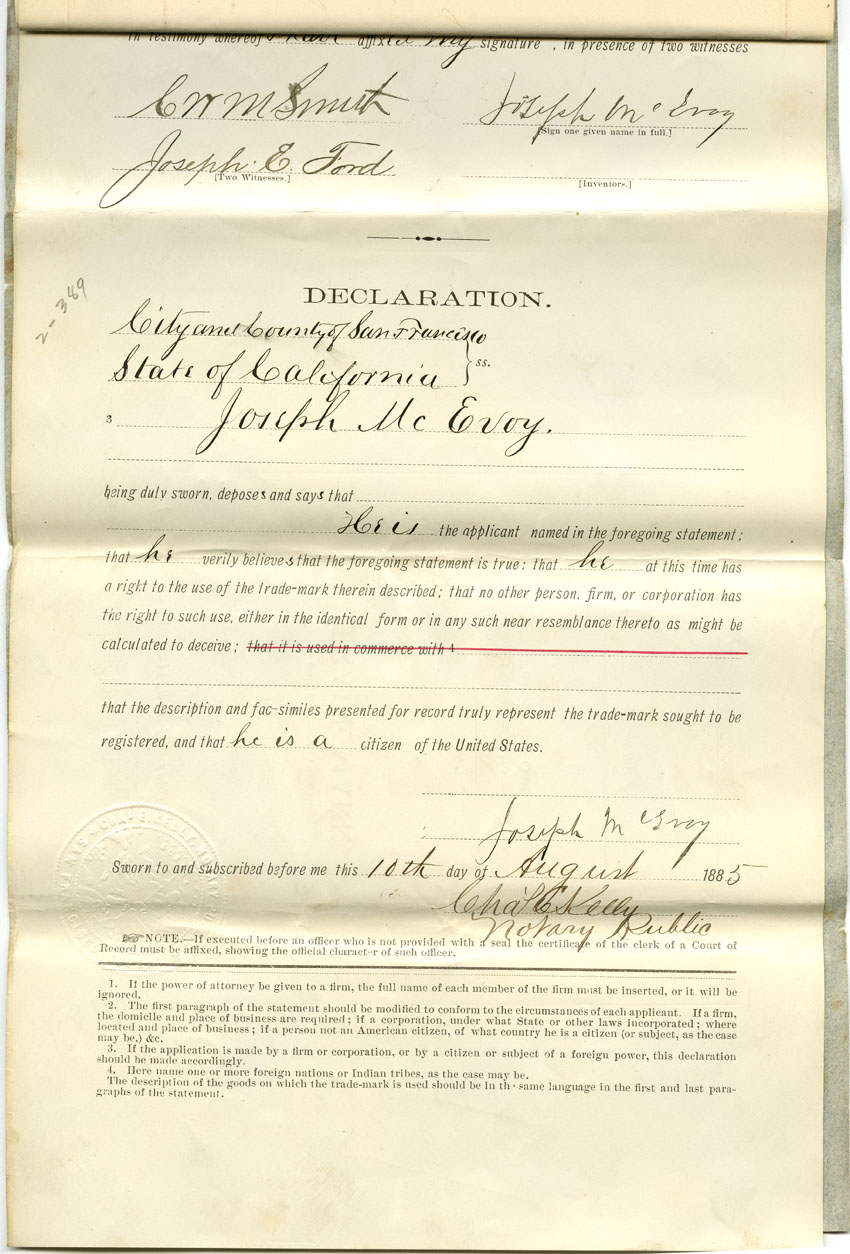 In testimony whereof I have affixed my signature, in presence of two witnesses
C W M Smith
Joseph McEvoy
[Sign one given name in full.]
Joseph E. Ford
[Two Witnesses.]
[Inventors.]
2-369
DECLARATION.
City and County of San Francisco
State of California } ss.
3 Joseph Mc Evoy.
being duly sworn, deposes and says that
He is the applicant named in the foregoing statement;
that he verily believes that the foregoing statement is true: that he at this time has
a right to the use of the trade-mark therein described; that no other person, firm, or corporation has
the right to such use, either in the identical form or in any such near resemblance thereto as might be
calculated to deceive; that it is used in commerce with 4
that the description and fac-similes presented for record truly represent the trade-mark sought to be
registered, and that he is a citizen of the United States.
Joseph McEvoy
Sworn to and subscribed before me this 10th day of August 1885
Chas E Kelly
Notary Public
☞ NOTE.—If executed before an officer who is not provided with a seal the certificate of the clerk of a Court of
Record must be affixed, showing the official character of such officer.
1. If the power of attorney be given to a firm, the full name of each member of the firm must be inserted, or it will be
ignored.
2. The first paragraph of the statement should be modified to conform to the circumstances of each applicant. If a firm,
the domicile and place of business are required; if a corporation, under what State or other laws incorporated; where
located and place of business; if a person not an American citizen, of what country he is a citizen (or subject, as the case
may be,) &c.
3. If the application is made by a firm or corporation, or by a citizen or subject of a foreign power, this declaration
should be made accordingly.
4. Here name one or more foreign nations or Indian tribes, as the case may be.
The description of the goods on which the trade-mark is used should be in the same language in the first and last para-
graphs of the statement.